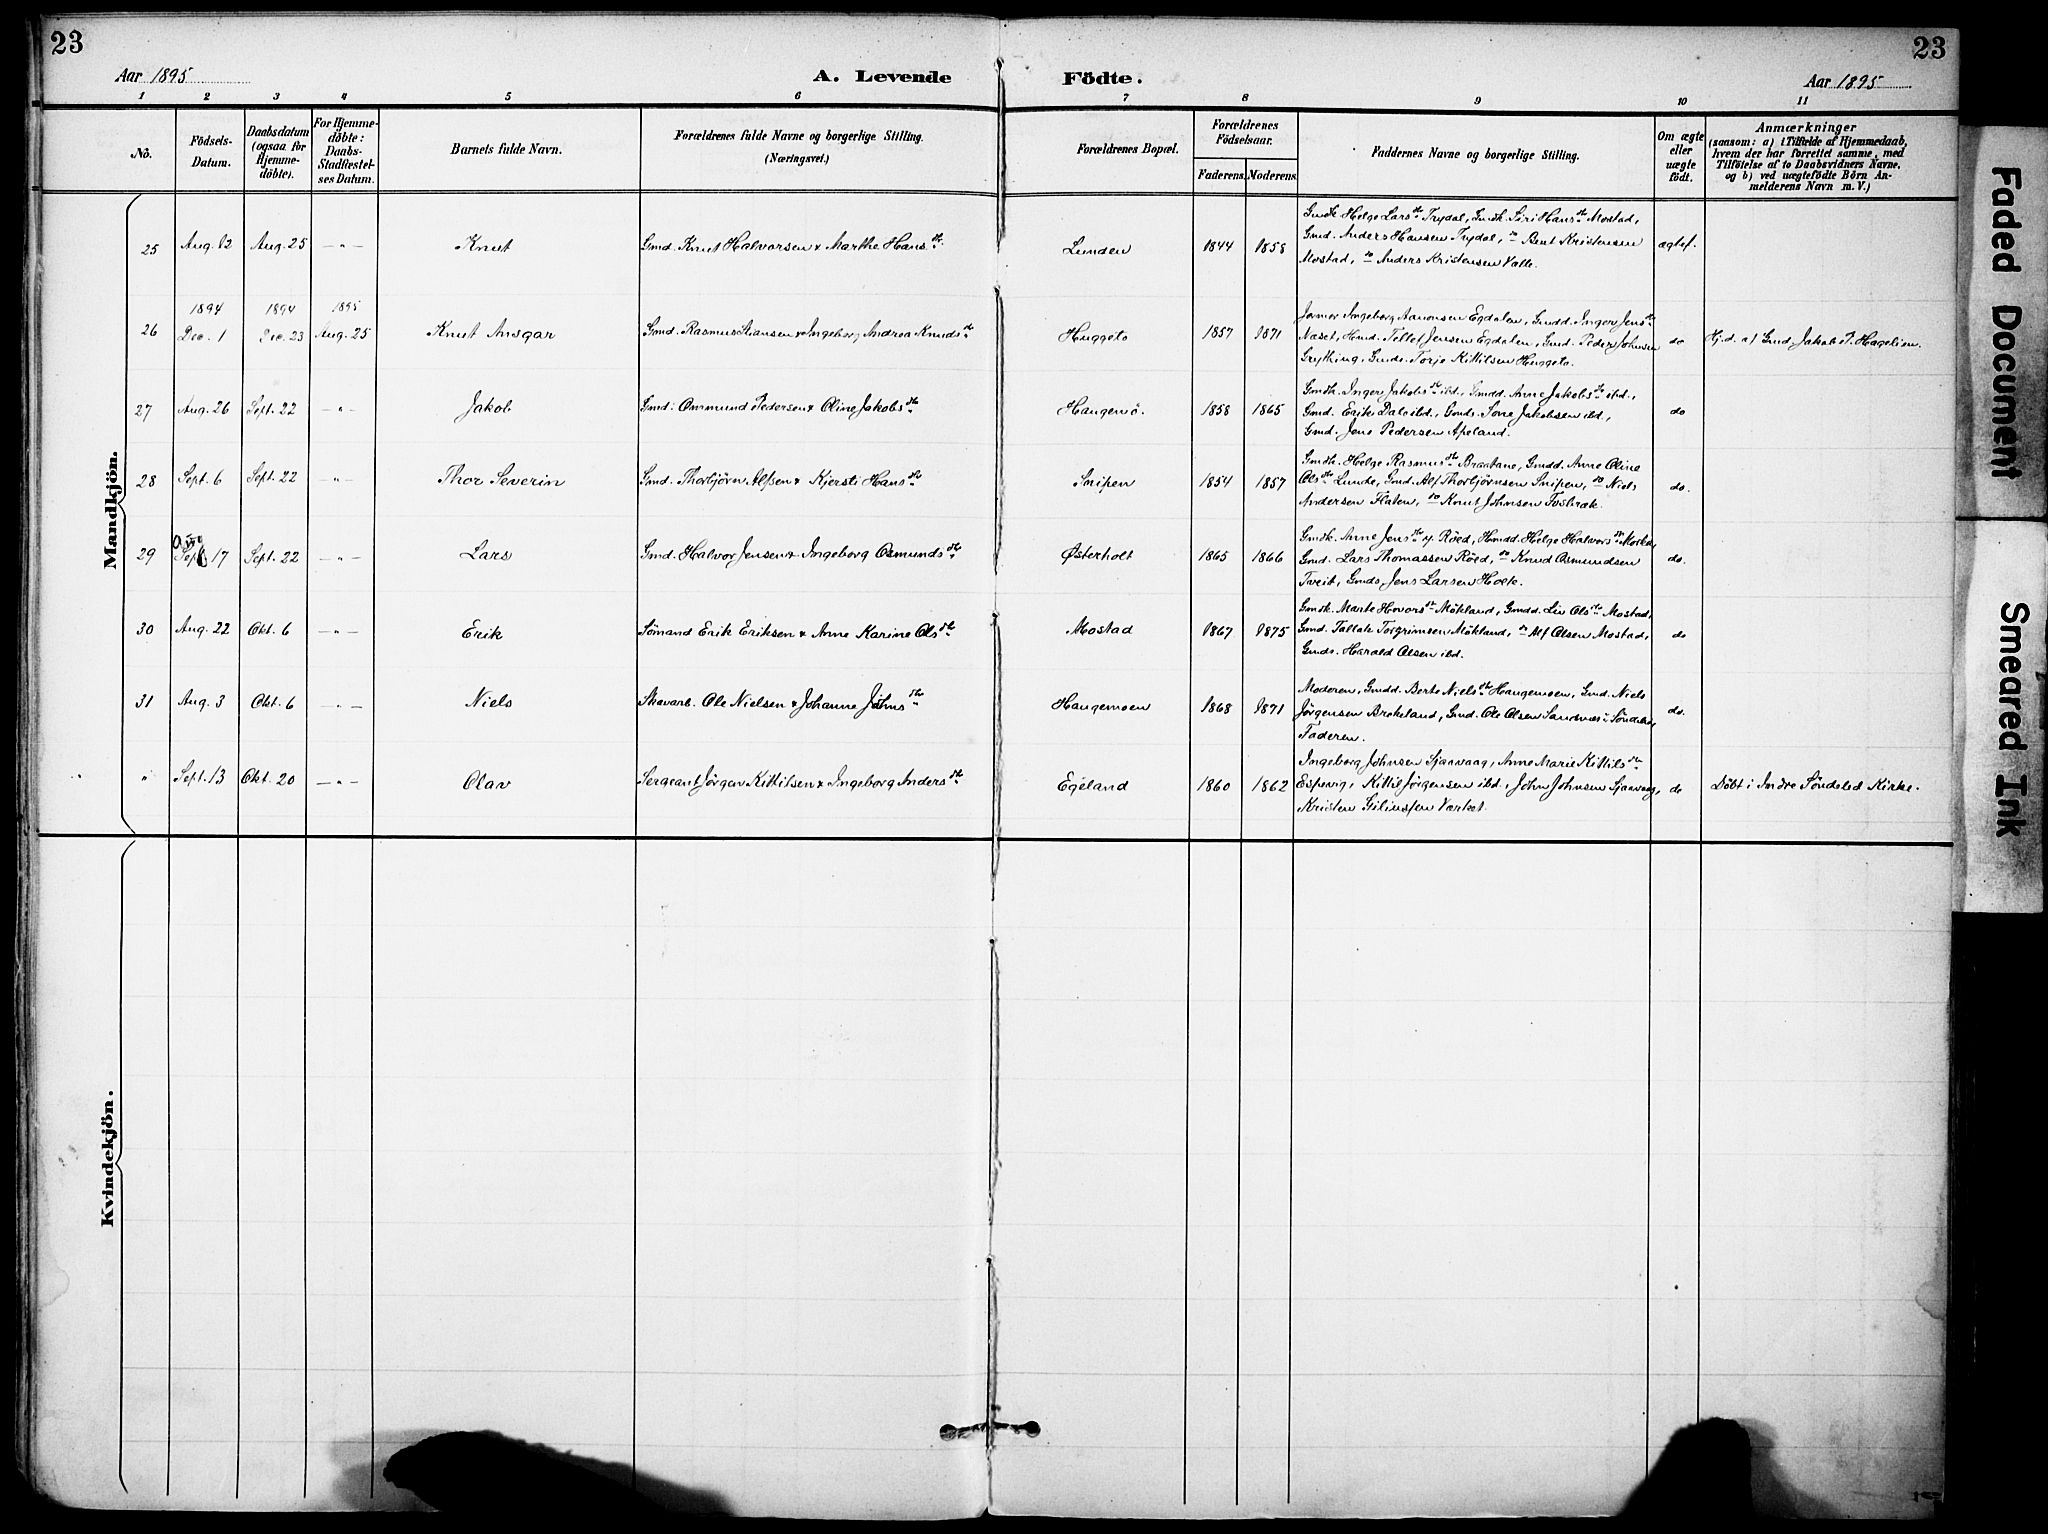 23
23
Aar 1895
A. Levende Födte.
Aar 1895
1 2 3 4 5 6 7 8 9 10 11
No.
Födsels-Datum.
Daabsdatum (ogsaa for Hjemme-döbte).
For Hjemme-döbte: Daabs-Stadfæstel-ses Datum.
Barnets fulde Navn.
Forældrenes fulde Navne og borgerlige Stilling.
(Næringsvei.)
Forældrenes Bopæl.
Forældrenes Födselsaar.
Faderens. Moderens.
Faddernes Navne og borgerlige Stilling.
Om ægte eller uægte födt.
Anmærkninger
(sansom: a) i Tilfælde af Hjemmedaab, hvem der har forrettet samme, med Tilföielse af to Daabsvidners Navne, og b) ved uægtefödte Börn An-melderens Navn m. V.)
Mandkjön.
25 Aug. 12 Aug. 25 —"— Knut Gmd. Knut Halvorsen & Marthe Hansdr. Lunden 1844 1858
Gmdk. Helge Larsdtr Trydal, Gmdk. Siri Hansdtr Mostad,
Gmd. Anders Hansen Trydal, do Bent Kristensen
Mostad, do Anders Kristensen Valle.
ægtef.
26 1894 Dec. 1 1894 Dec. 23 1895 Aug. 25 Knut Ansgar Gmd. Rasmus Stiansen & Ingeborg Andrea Knudsdtr Huggeto 1857 1871
Jormor Ingeborg Aanonsen Egdalen, Gmdd. Inger Jensdtr
Næset, Hmd. Tellef Jensen Egdalen, Gmd. Peder Johnsen
Grything, Gmds. Torje Kittilsen Huggeto.
do Hj.d. af Gmd. Jakob T. Hagelien.
27 Aug. 26 Sept. 22 —"— Jakob Gmd. Ommund Pedersen & Oline Jakobsdtr Haugemo. 1858 1865
Gmdk. Inger Jakobsdtr ibd., Gmdd. Anne Jakobsdtr ibd.,
Gmd. Erik Dale ibd., Gmds. Sone Jakobsen ibd.,
Gmd. Jens Pedersen Apeland.
do
28 Sept. 6 Sept. 22 —"— Thor Severin Gmd. Thorbjörn Alfsen & Kjersti Hansdtr Snipen 1854 1857
Gmdk. Helge Rasmusdtr Braatane, Gmdd. Anne Oline
Olsdtr Lunde, Gmd. Alf Thorbjörnsen Snipen, do Niels
Andersen Flaten, do Knut Johnsen Fosbræk.
do.
29 Aug Sept 17 Sept. 22 —"— Lars Gmd. Halvor Jensen & Ingeborg Osmundsdtr Østerholt 1865 1866
Gmdk. Anne Jensdtr y. Röed, Hmdd. Helge Halvorsdtr
Gmd. Lars Thomassen Röed, do Knud Osmundsen
Tveit, Gmds. Jens Larsen Holte.
do.
30 Aug. 22 Okt. 6 —"— Erik Sømand Erik Eriksen & Anne Karine Olsdtr Mostad 1867 1875
Gmdk. Marte Hovorsdtr Mökland, Gmdd. Liv Olsdtr Mostad,
Gmd. Tallak Torgrimsen Mökland, do Alf Olsen Mostad,
Gmds. Harald Olsen ibd.
do
31 Aug. 3 Okt. 6 —"— Niels Skovarb. Ole Nielsen & Johanne Johnsdtr Haugemoen 1868 1871
Moderen, Gmdd. Berte Nielsdtr Haugemoen, Gmd. Niels
Jörgensen Brokeland, Gmd. Ole Olsen Sandnæs i Söndeled,
Faderen.
do.
" Sept. 13 Okt. 20 —"— Olav Sergeant Jörgen Kittilsen & Ingeborg Andersdtr Egeland 1860 1862
Ingeborg Johnsen Sjaavaag, Anne Marie Kittilsdtr
Espevig, Kittil Jörgensen ibd., John Johnsen Sjaavaag,
Kristen Værket.
do Döbt i Indre Söndeled Kirke.
Kvindekjön.
Faded Document
Smeared Ink